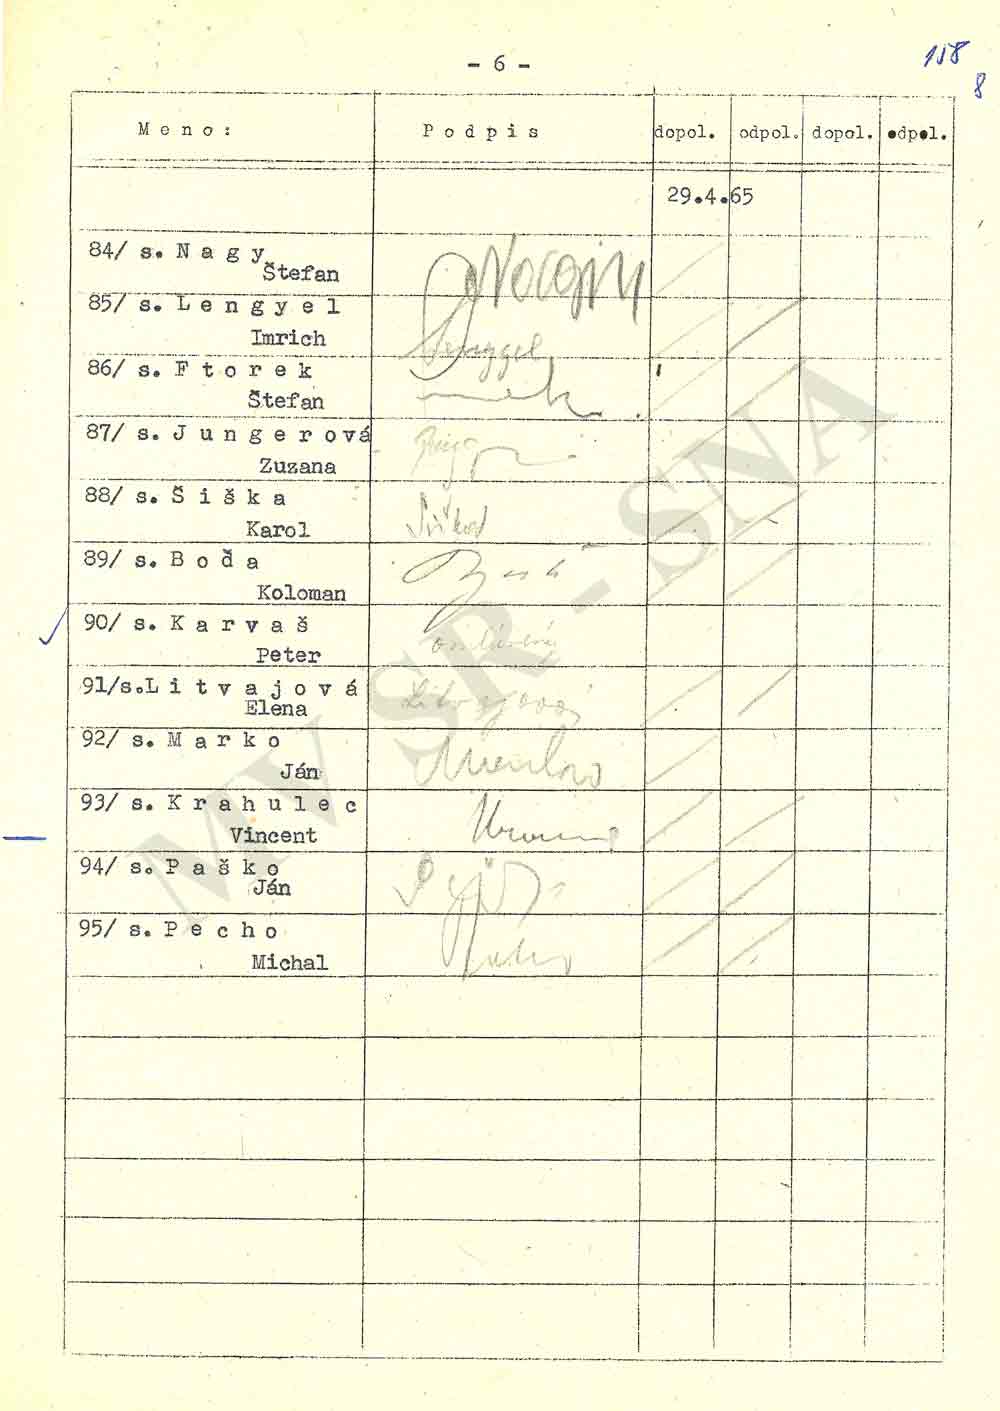 - 6 -
158
8
M e n o :
P o d p i s
dopol.
odpol.
dopol.
odpol.
29.4.65
84/ s. N a g y
Štefan
85/ s. L e n g y e l
Imrich
Lengyel
86/ s. F t o r e k
Štefan
87/ s. J u n g e r o v á
Zuzana
88/ s. Š i š k a
Karol
89/ s. B o ď a
Koloman
90/ s. K a r v a š
Peter
91/s.L i t v a j o v á
Elena
Litvajová
92/ s. M a r k o
Ján
93/ s. K r a h u l e c
Vincent
94/ s. P a š k o
Ján
95/ s. P e c h o
Michal
MV SR - SNA